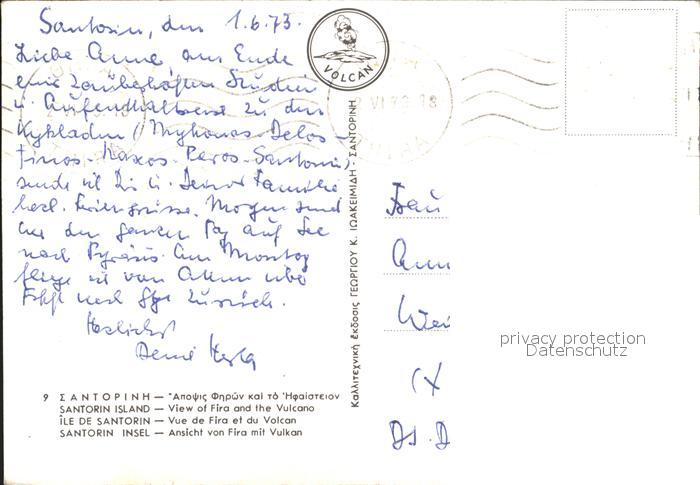 Santorin, den 1.6.73.
Liebe Anne, am Ende
eine zauberhaften Studien
u. Aufenthaltsreise zu den
Kykladen (Mykonos-Delos-
Tinos-Naxos-Paros-Santorin),
sende ich Dir u. Deiner Familie
herzl. Feriengrüsse. Morgen sind
wir den ganzen Tag auf See
nach Pyräus. Am Montag
fliege ich von Athen über
zurück.
Herzlichst
Deine
VOLCAN
Καλλιτεχνική ἔκδοσις ΓΕΩΡΓΙΟΥ Κ. ΙΩΑΚΕΙΜΙΔΗ - ΣΑΝΤΟΡΙΝΗ
Frau
Ann
privacy protection
Datenschutz
9 ΣΑΝΤΟΡΙΝΗ — Ἄποψις Φηρῶν καὶ τὸ Ἡφαίστειον
SANTORIN ISLAND — View of Fira and the Vulcano
ÎLE DE SANTORIN — Vue de Fira et du Volcan
SANTORIN INSEL — Ansicht von Fira mit Vulkan